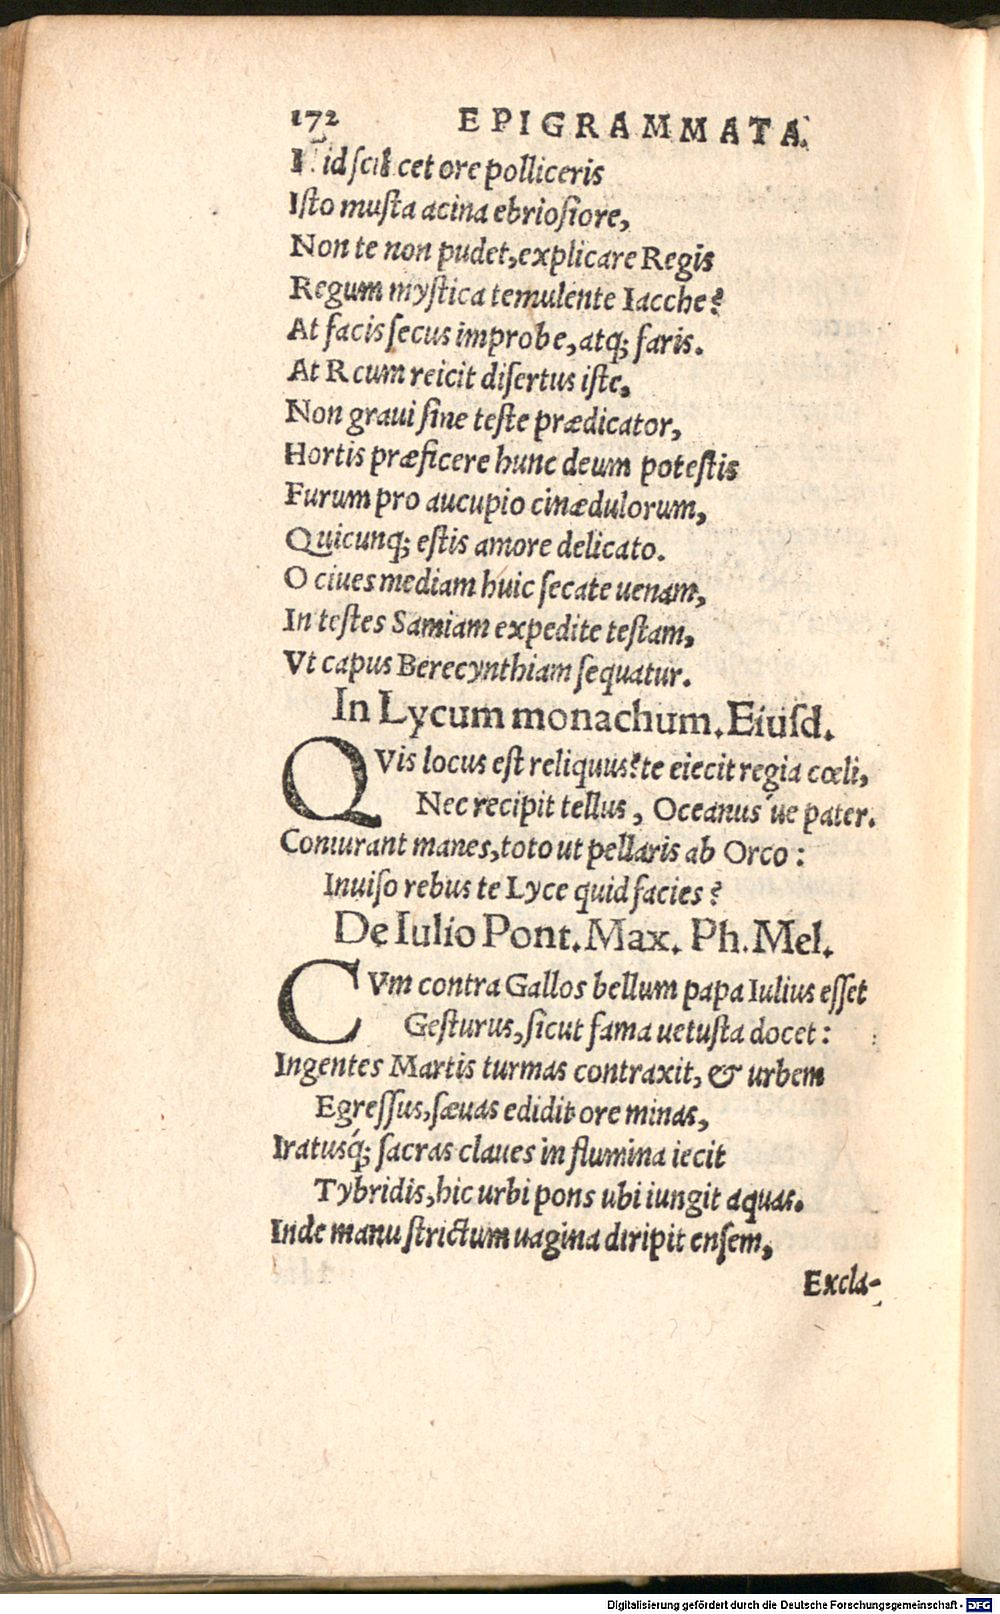 172 EPIGRAMMATA.
id scilicet ore polliceris
Isto musta acina ebriosiore,
Non te non pudet, explicare Regis
Regum mystica temulente Iacche?
At facis secus improbe, atq; faris.
At R cum reicit disertus iste,
Non graui sine teste prædicator,
Hortis præficere hunc deum potestis
Furum pro aucupio cinædulorum,
Quicunq; estis amore delicato.
O ciues mediam huic secate uenam,
In testes Samiam expedite testam,
Vt capus Berecynthiam sequatur.
In Lycum monachum. Eiusd.
QVis locus est reliquus? te eiecit regia cœli,
Nec recipit tellus, Oceanus ue pater.
Coniurant manes, toto ut pellaris ab Orco:
Inuiso rebus te Lyce quid facies?
De Iulio Pont. Max. Ph. Mel.
CVm contra Gallos bellum papa Iulius esset
Gesturus, sicut fama uetusta docet:
Ingentes Martis turmas contraxit, & urbem
Egressus, sæuas edidit ore minas,
Iratusq́; sacras claues in flumina iecit
Tybridis, hic urbi pons ubi iungit aquas.
Inde manu strictum uagina diripit ensem,
Excla-
Digitalisierung gefördert durch die Deutsche Forschungsgemeinschaft - DFG